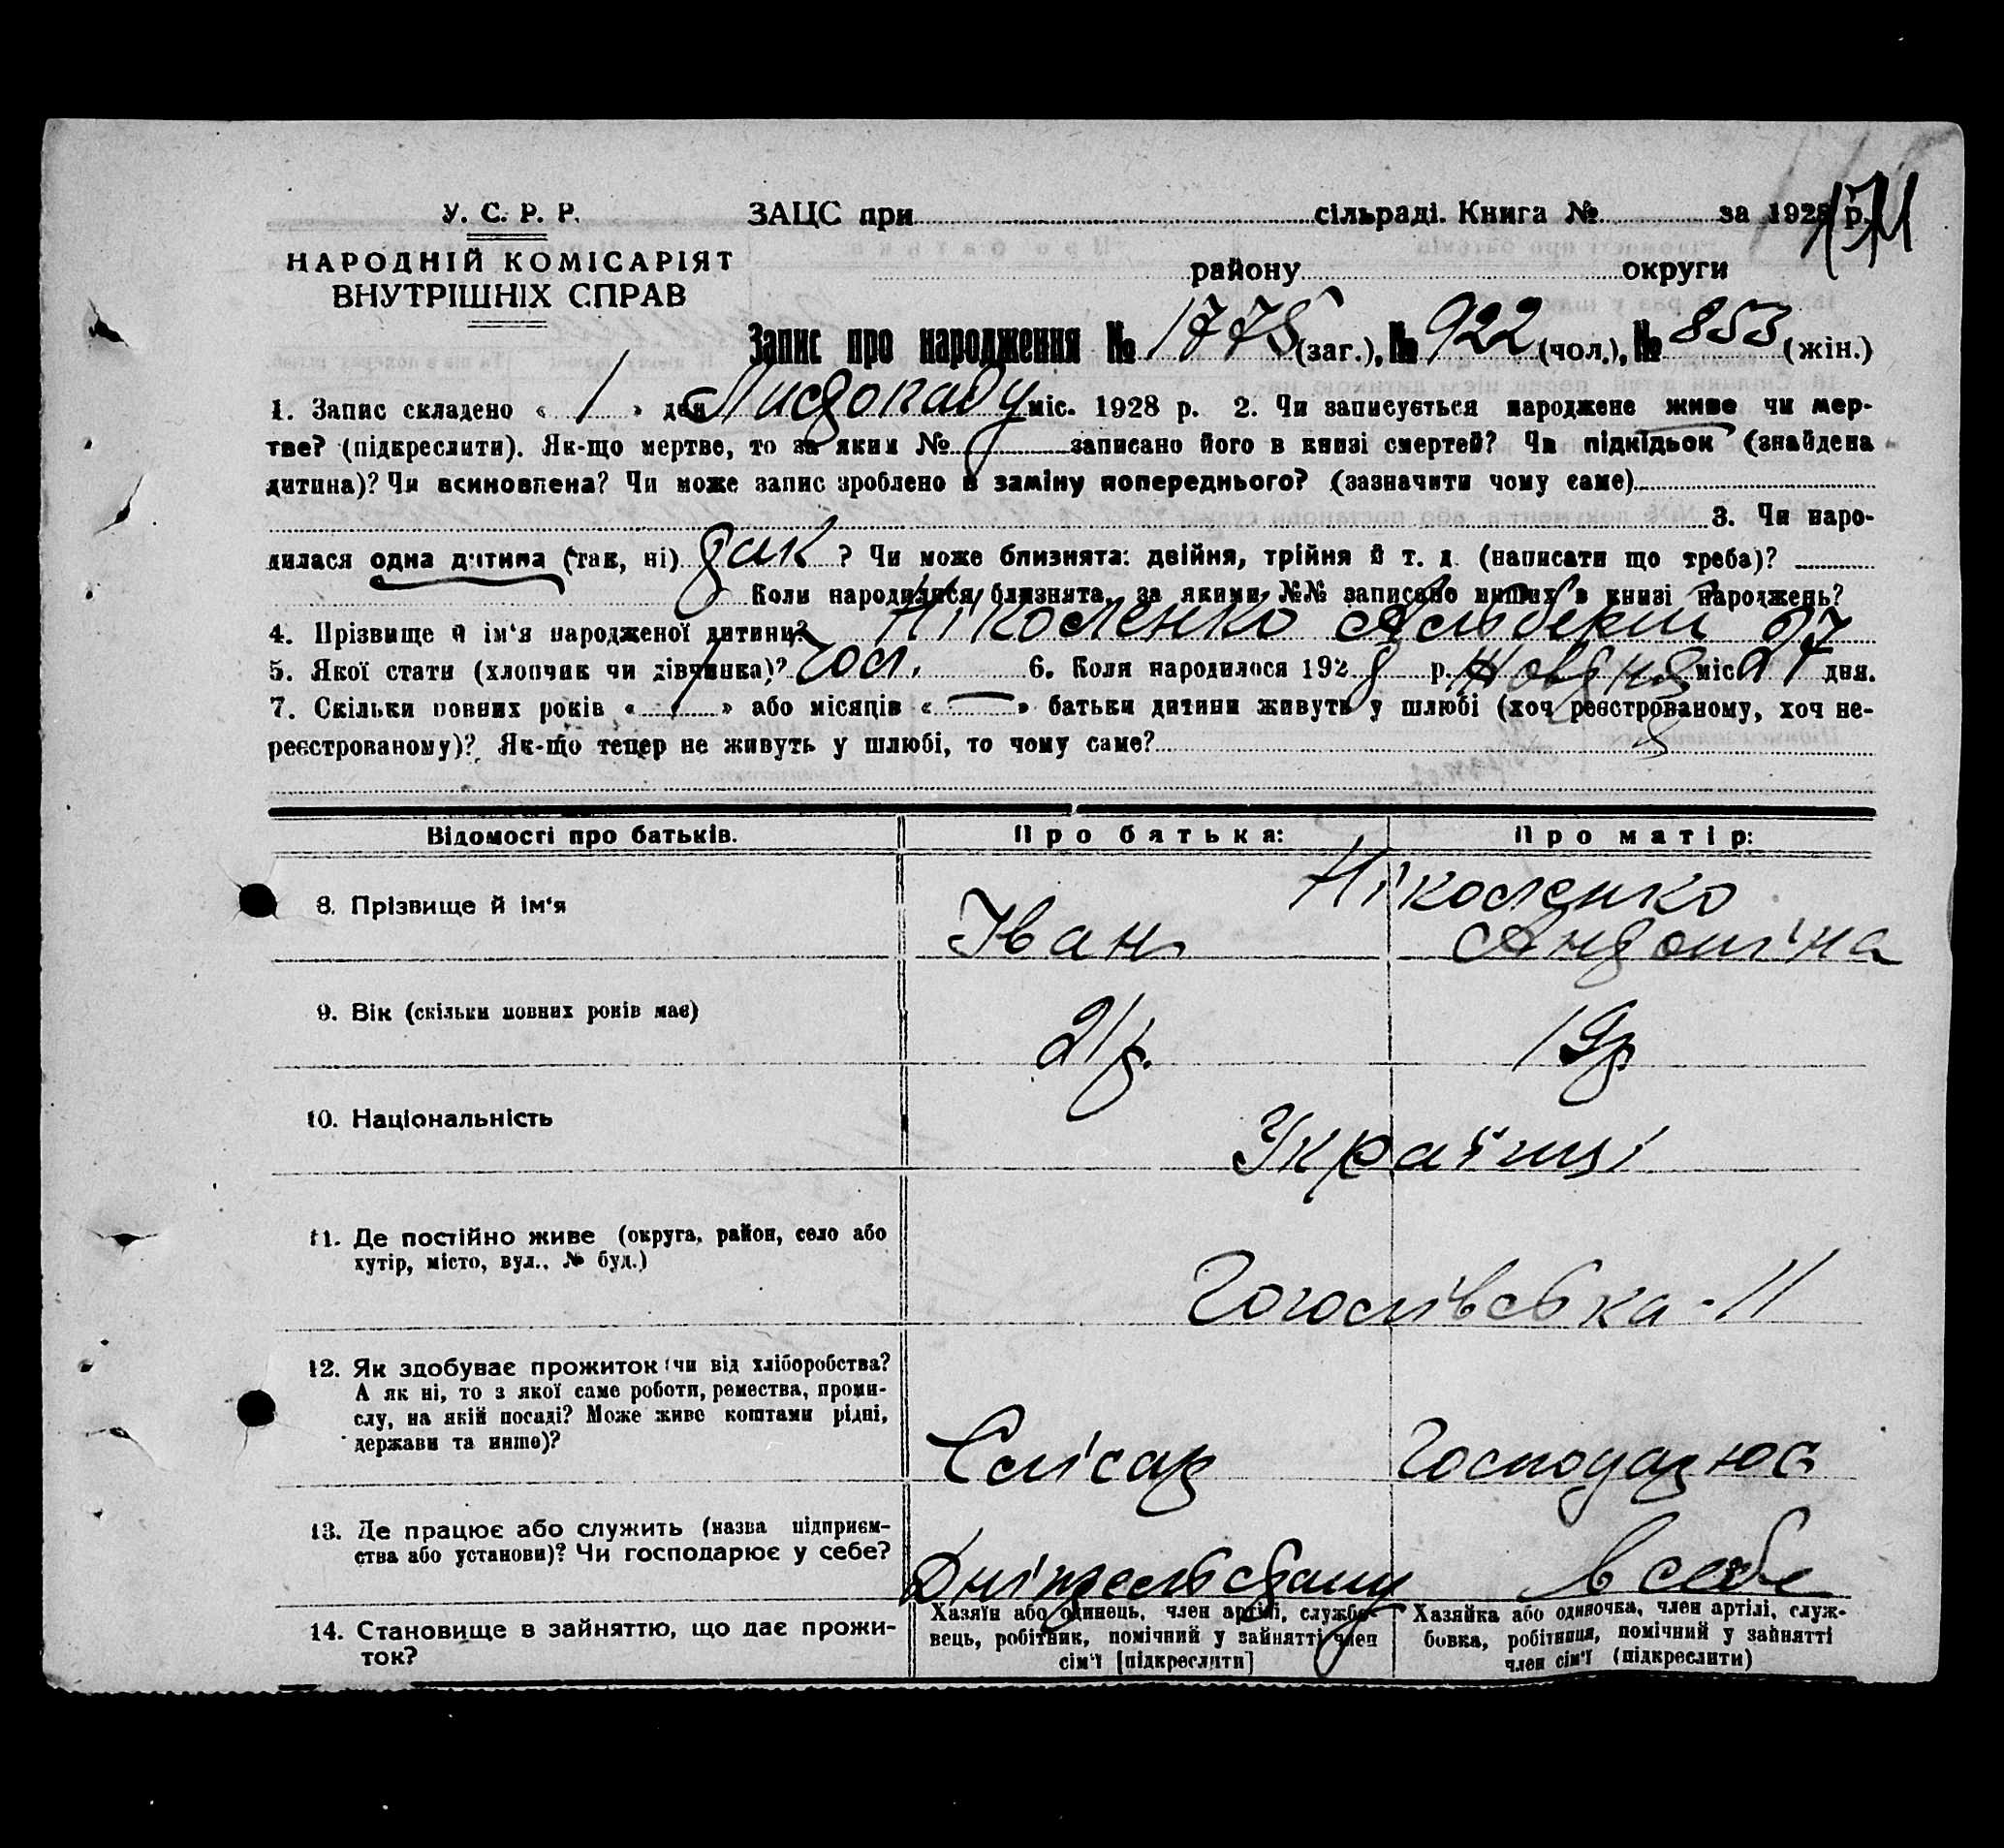 У. С. Р. Р.
НАРОДНІЙ КОМІСАРІЯТ
ВНУТРІШНІХ СПРАВ
ЗАЦС при сільраді. Книга № за 1928 р.
району округи
Запис про народження № 1775 (заг.), № 922 (чол.), № 853 (жін.)
1. Запис складено « 1 » дня Листопаду міс. 1928 р. 2. Чи записується народжене живе чи мер-
тве? (підкреслити). Як-що мертве, то за яким № записано його в книзі смертей? Чи підкідьок (знайдена
дитина)? Чи всиновлена? Чи може запис зроблено в заміну попереднього? (зазначити чому саме)
3. Чи наро-
дилася одна дитина (так, ні) так ? Чи може близнята: двійня, трійня й т. д. (написати що треба)?
Коли народилися близнята, за якими №№ записано инших в книзі народжень?
4. Прізвище й ім'я народженої дитини? Ніколенко Альберт
5. Якої стати (хлопчик чи дівчинка)? Чол. 6. Коли народилося 1928 р. Жовтня міс 27 дня.
7. Скільки повних років « 1 » або місяців « — » батьки дитини живуть у шлюбі (хоч реєстрованому, хоч не-
реєстрованому)? Як-що тепер не живуть у шлюбі, то чому саме?
Відомості про батьків. Про батька: Про матір:
8. Прізвище й ім'я Ніколенко
Іван Антоніна
9. Вік (скільки повних років має) 21 р. 19 р.
10. Національність Українці
11. Де постійно живе (округа, район, село або
хутір, місто, вул., № буд.)
Гоголівська - 11
12. Як здобуває прожиток (чи від хліборобства?
А як ні, то з якої саме роботи, ремества, проми-
слу, на якій посаді? Може живе коштами рідні,
держави та инше)?
Слісар Господарює
13. Де працює або служить (назва підприєм-
ства або установи)? Чи господарює у себе?
Дніпрельстану в себе
14. Становище в зайняттю, що дає прожи-
ток?
Хазяїн або одинець, член артілі, службо-
вець, робітник, помічний у зайнятті член
сім'ї [підкреслити]
Хазяйка або одиночка, член артілі, служ-
бовка, робітниця, помічний у зайнятті
член сім'ї (підкреслити)